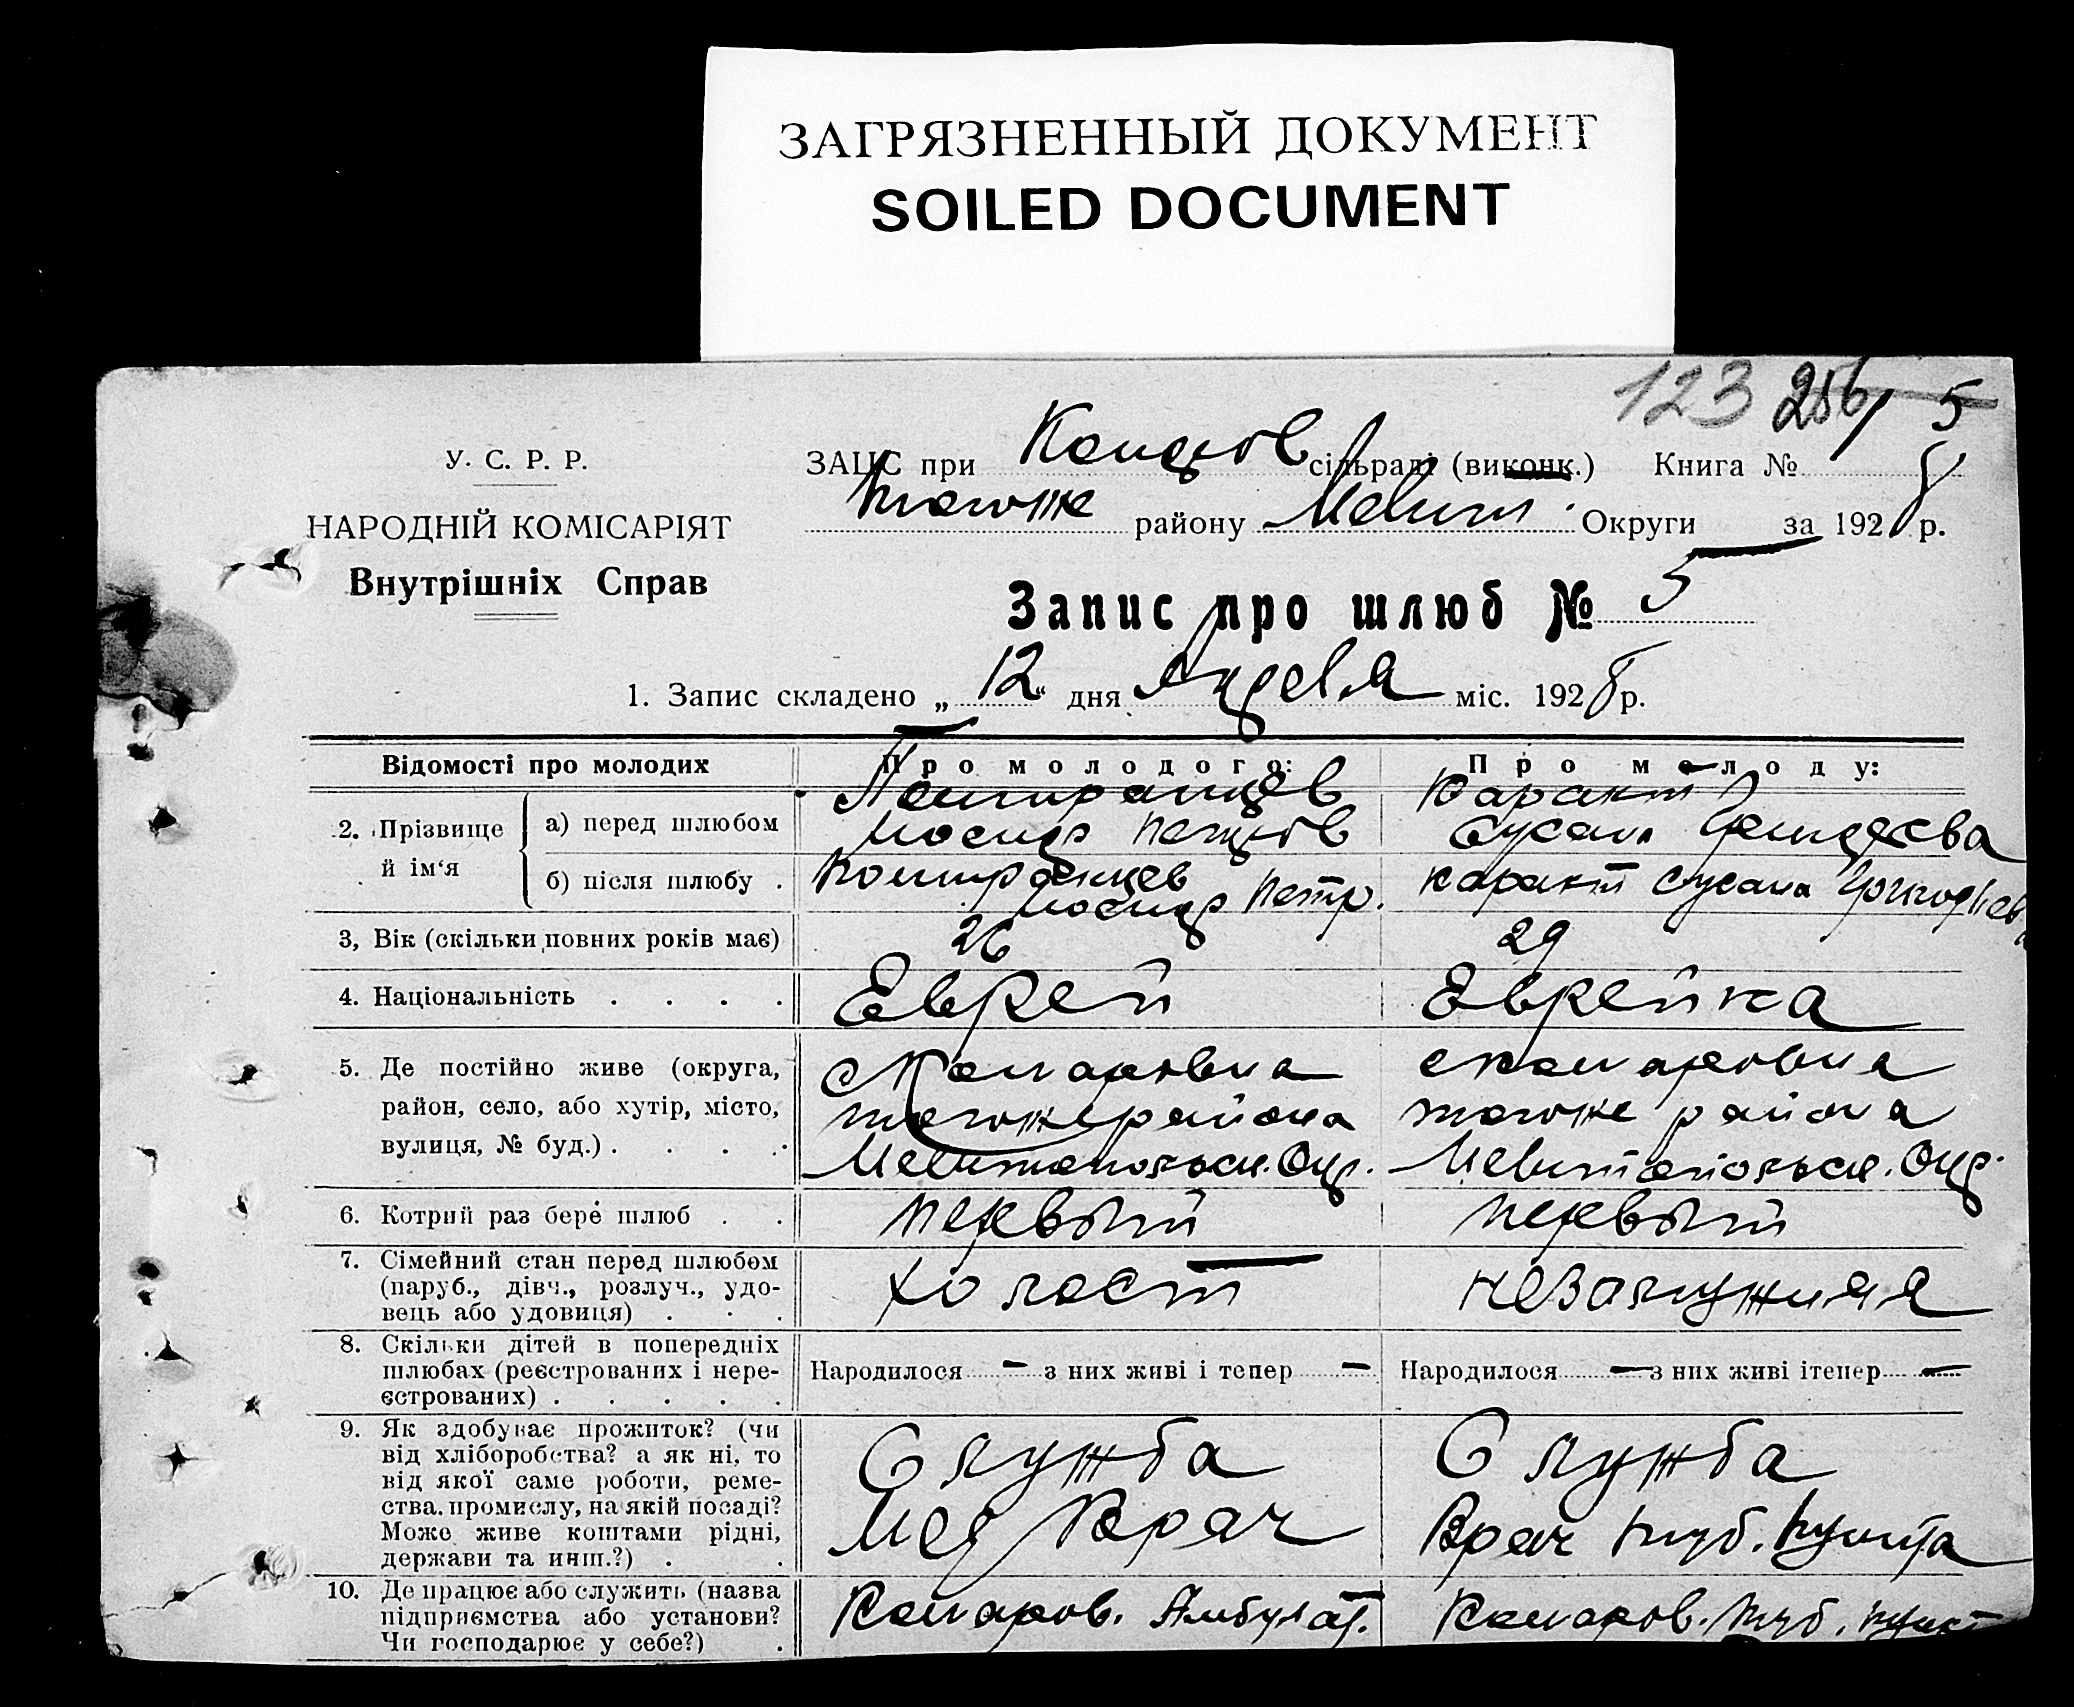 ЗАГРЯЗНЕННЫЙ ДОКУМЕНТ
SOILED DOCUMENT
123 256/ 5
У. С. Р. Р.
НАРОДНІЙ КОМІСАРІЯТ
Внутрішніх Справ
ЗАЦС при сільраді (виконк.) Книга №
району Мелит. Округи за 1928 р.
Запис про шлюб № 5
1. Запис складено „12“ дня Апреля міс. 1928 р.
Відомості про молодих
Про молодого:
Про молоду:
2. Прізвище й ім‘я
а) перед шлюбом
Карант
Сусана
б) після шлюбу .
Петр.
Карант Сусана
3, Вік (скільки повних років має)
26
29
4. Національність . . . .
Еврей
Еврейка
5. Де постійно живе (округа,
район, село, або хутір, місто,
вулиця, № буд.) . . . .
с Комаровка
района
Мелитопольск. Окр.
с Комаровка
района
Мелитопольск. Окр.
6. Котрий раз бере шлюб . .
первый
первый
7. Сімейний стан перед шлюбом
(паруб., дівч., розлуч., удо-
вець або удовиця) . . .
холост
незамужняя
8. Скільки дітей в попередніх
шлюбах (реєстрованих і нере-
єстрованих) . . . . .
Народилося — з них живі і тепер —
Народилося — з них живі ітепер —
9. Як здобуває прожиток? (чи
від хліборобства? а як ні, то
від якої саме роботи, реме-
ства, промислу, на якій посаді?
Може живе коштами рідні,
держави та инш.?) . .
Служба
Мед Врач
Служба
Врач туб. пункта
10. Де працює або служить (назва
підприємства або установи?
Чи господарює у себе?) .
Комаров. Амбулат.
Комаров. туб. пункт